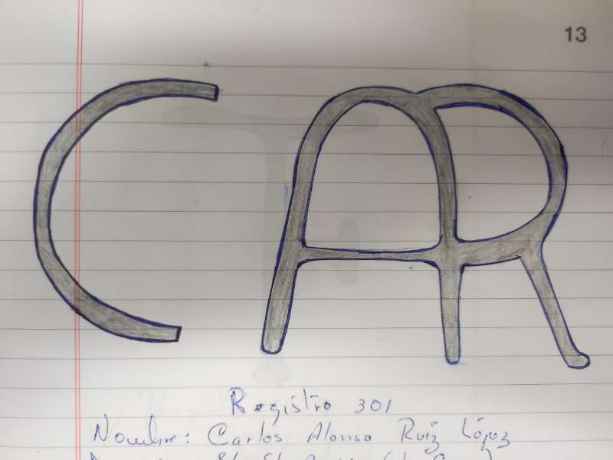 13
CAR
Registro 301
Nombre: Carlos Alonso Ruiz López